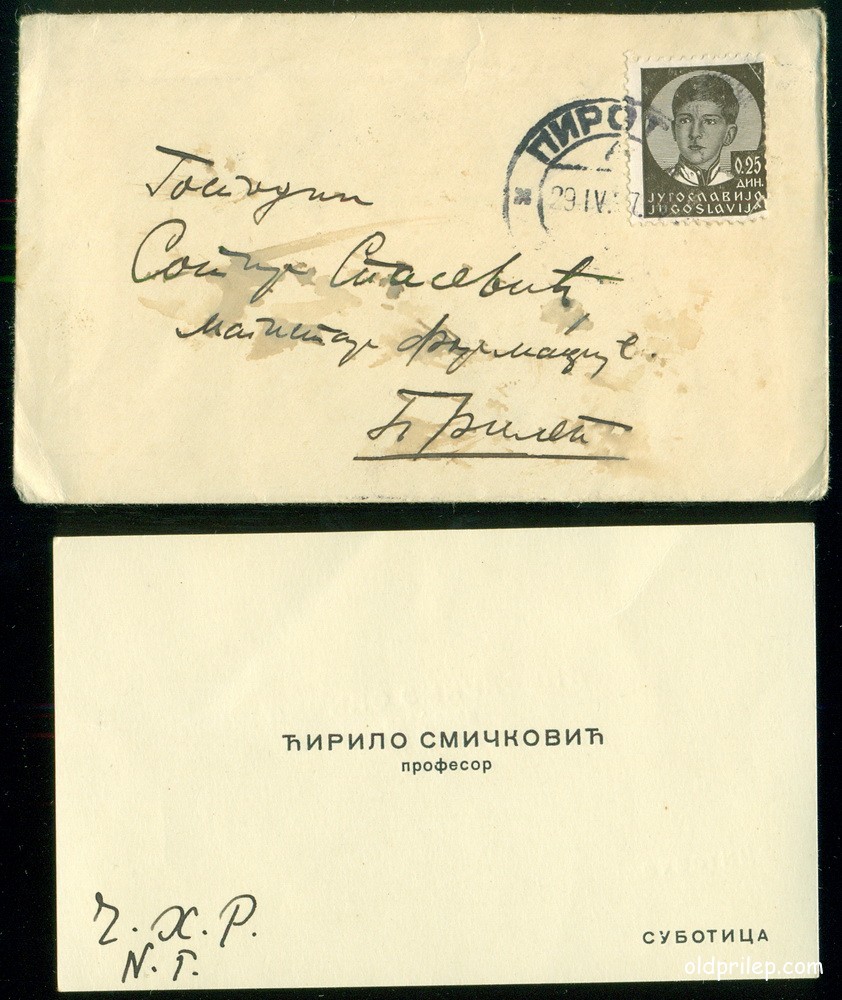 ПИРОТ
29.IV.37
0.25
ДИН.
ЈУГОСЛАВИЈА
JUGOSLAVIJA
Господин
Сотир Спасевић,
магистар фармације
Прилеп
ЋИРИЛО СМИЧКОВИЋ
професор
Ч. Х. Р.
N. Г.
СУБОТИЦА
oldprilep.com